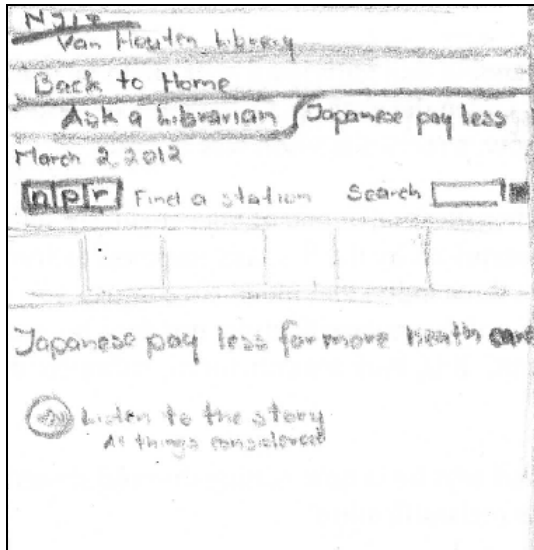 NJIT
Van Houten Library
Back to Home
Ask a Librarian Japanese pay less
March 2 2012
npr Find a station Search
Japanese pay less for more heath care
Listen to the story
As things considered